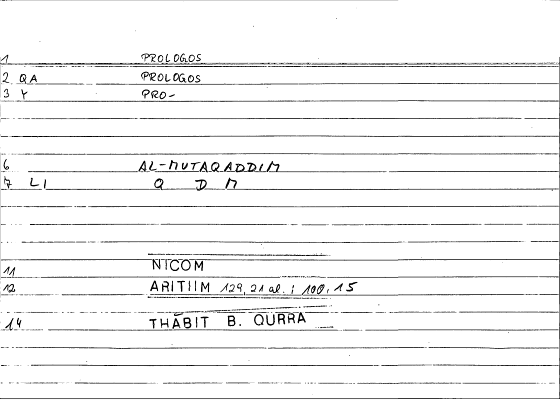 1 PROLOGOS
2 QA PROLOGOS
3 Y PRO-
6 AL-MUTAQADDIM
7 LI Q D M
11 NICOM
12 ARITIIM 129, 21 al. ; 100, 15
14 THĀBIT B. QURRA